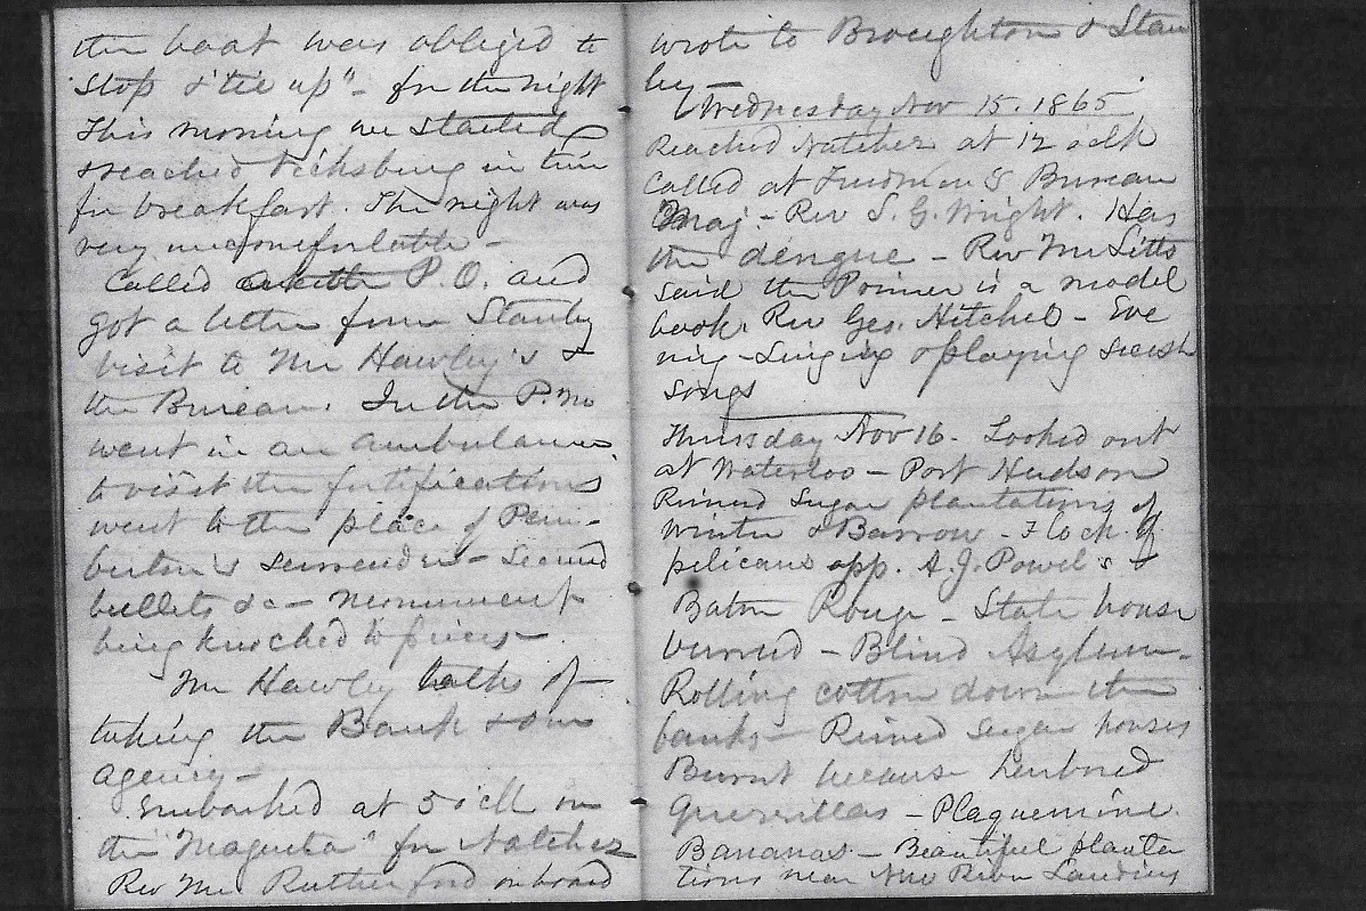 the boat was obliged to
stop & "tie up" - for the night
This morning we started
& reached Vicksburg in time
for breakfast. The night was
very uncomfortable -
Called at the P.O. and
got a letter from Stanly
visit to Mr Hawley's &
the Bureau. In the P.M.
went in an ambulance
to visit the fortifications
went to the place of Pem-
berton's surrender - secured
bullets &c - monument
being knocked to pieces -
Mr Hawley talks of
taking the Bank & our
agency -
Embarked at 5 o'clk on
the "Magenta" for Natchez
Rev Mr Rutherford on board
wrote to Broughton & Stan
ley -
Wednesday Nov 15. 1865
Reached Natchez at 12 oclk
Called at Freedmen's Bureau
Maj - Rev S. G. Wright. Has
the dengue - Rev Mr Litts
said the Primer is a model
book. Rev Geo. Hitchel - Eve
ning - Singing & playing secesh
songs
Thursday Nov 16. Looked out
at Waterloo - Port Hudson
Ruined sugar plantations of
Winter & Barrow - Flock of
pelicans opp. A.J. Powel's
Baton Rouge - State house
burned - Blind Asylum -
Rolling cotton down the
banks - Ruined sugar houses
Burnt because harbored
Guerrillas - Plaquemine.
Bananas - Beautiful planta
tions near New River Landing